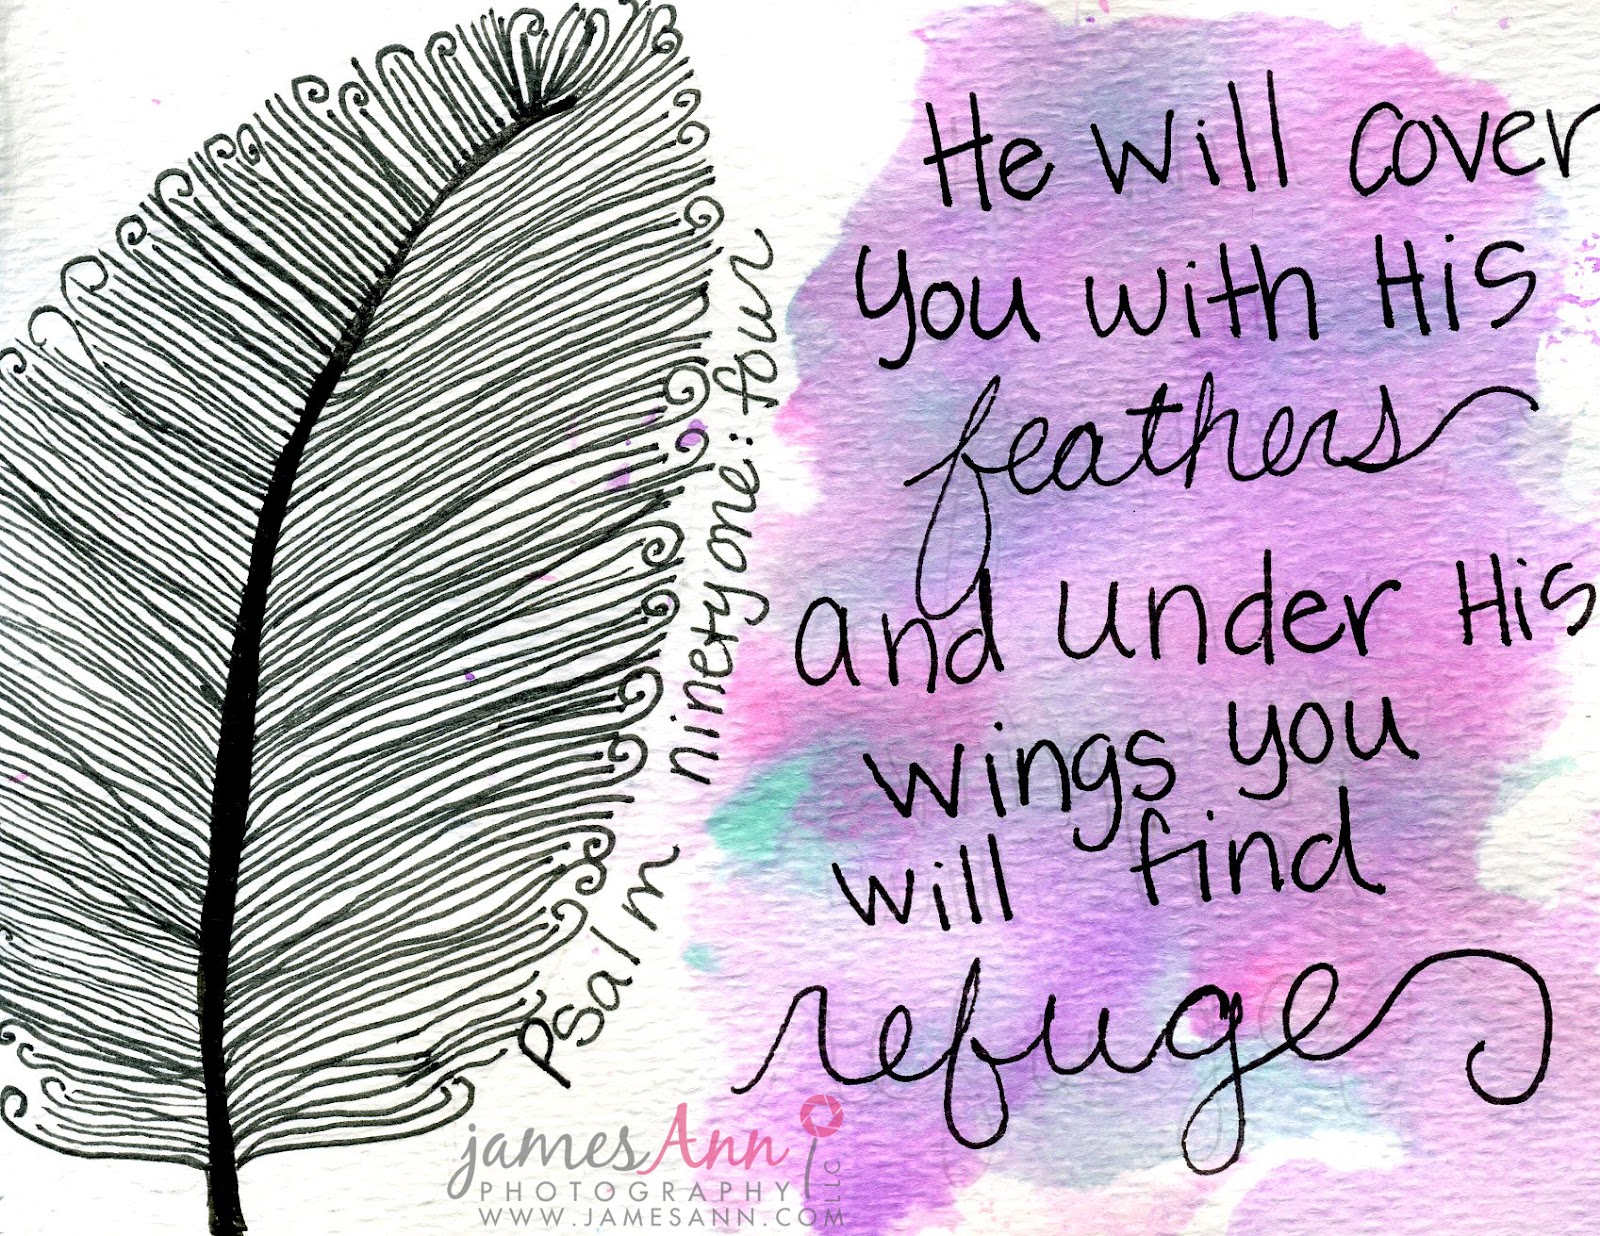 He will cover
you with His
feathers
and under His
wings you
will find
refuge
Psalm ninetyone:four
james Ann
PHOTOGRAPHY LLC
WWW.JAMESANN.COM